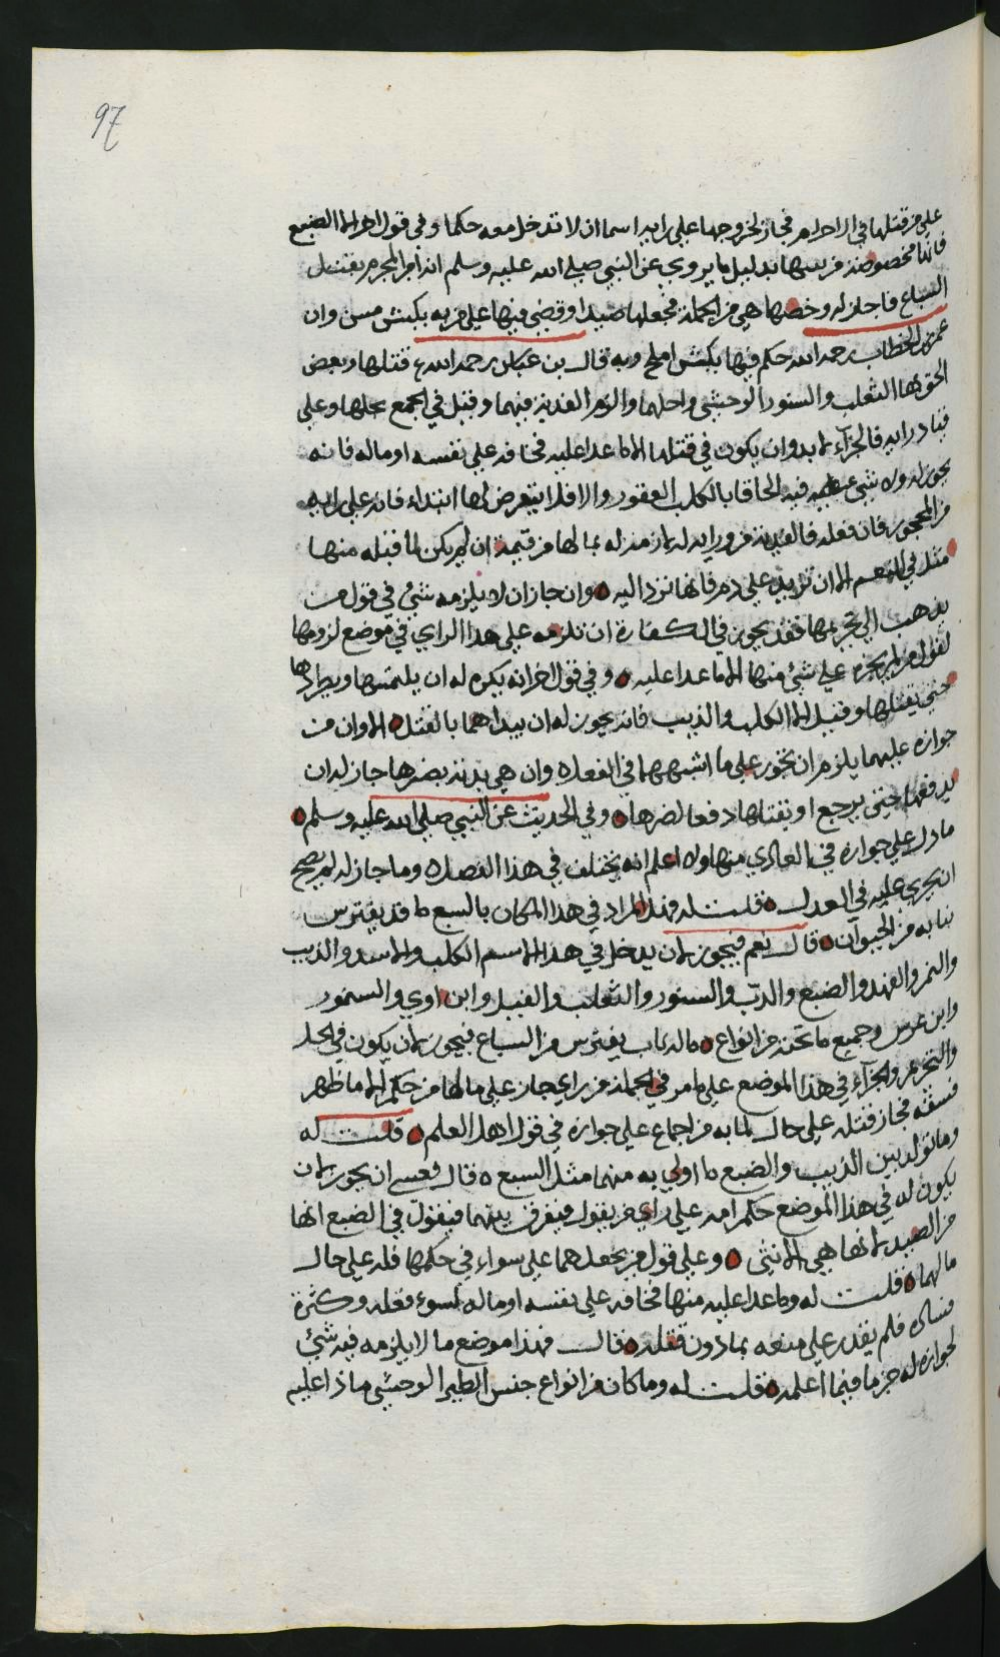 97
على من قتلها في الاحرام فجاز لخروجها على راي اسما ان لا تدخل معه حكما وفي قول اخر الا الضبع
فانها مخصوصة من بينها بدليل ما يروي عن النبي صلى الله عليه وسلم انه امر المحرم بقتل
السباع فاجاز له وخصها هي من الجملة فجعلها صيدا وقضي فيها على من به بكبش مسن وان
عمر بن الخطاب رحمه الله حكم فيها بكبش املح وبه قال بن عباس رحمه الله قتلها وبعض
الحق بها الثعلب والسنور الوحشي واحلهما والزم الفدية فيهما وقيل في الجمع بحلها وعلى
قياد رايه فالجزاء لا بد وان يكون في قتلها الا ما عدا عليه فخافه على نفسه او ماله فانه
يجوز له ولا شي عليه فيه الحاقا بالكلب العقور والا فلا يتعرض لها ابتداء فانه على رايه
من المحجور فان فعله فالفدية من ورايه له لازمة له بما لها من قيمة ان لم يكن لما قتله منها
مثل في النعم الا ان تزيد على دم فانها ترد اليه وان جاز ان لا يلزمه شي في قول من
يذهب الي تحريمها فقد يجوز في الكفارة ان تلزمه على هذا الراي في موضع لزومها
لقول من لم يجزه على شي منها الا ما عدا عليه وفي قول اخر انه يكره له ان يلتمسها ويطاردها
حتي يقتلها وقيل الا الكلب والذيب فانه يجوز له ان يبداهما بالقتل الا وان من
جوازه عليهما يلزم ان يجوز على ما اشبههما في الفعل وان هي بدته بضرها جاز له ان
يدفعها حتى يرجع او يقتلها دفعا لضرها وفي الحديث عن النبي صلى الله عليه وسلم
ما دل على جوازه في العادي منها ولا اعلم انه يختلف في هذا الفصل وما جاز له لم يصح
ان يجري عليه في العدل قلت له فهذا المراد في هذا المكان بالسبع ما قد يفترس
بنابه من الحيوان قال نعم فيجوز لان يدخل في هذا الاسم الكلب والاسد والذيب
والنمر والفهد والضبع والدب والسنور والثعلب والفيل وابن اوي والسمور
وابن عرس وجميع ما تحته من انواع ماله ناب يفترس من السباع فيجوز لان يكون في الحل
والتحريم والجزاء في هذا الموضع على ما مر في الجملة من راي جاز على ما لها من حكم الا ما ظهر
فسقه فجاز قتله على حال لما به من اجماع على جوازه في قول اهل العلم قلت له
وما تولد بين الذيب والضبع ما اولي به منهما مثل السبع قال فعسي ان يجوز لان
يكون له في هذا الموضع حكم امه على راي من يقول فيفرق بينهما فيقول في الضبع انها
من الصيد لانها هي الانثي وعلى قول من يجعلهما على سواء في حكمها فله على حال
ما لهما قلت له وما عدا عليه منها فخافه على نفسه او ماله لسوء فعله وكثرة
فساده فلم يقدر على منعه بما دون قتله قال فهذا موضع ما لا يلزمه فيه شي
لجوازه له جزما فيما اعلمه قلت له وما كان من انواع جنس الطير الوحشي ماذا عليه